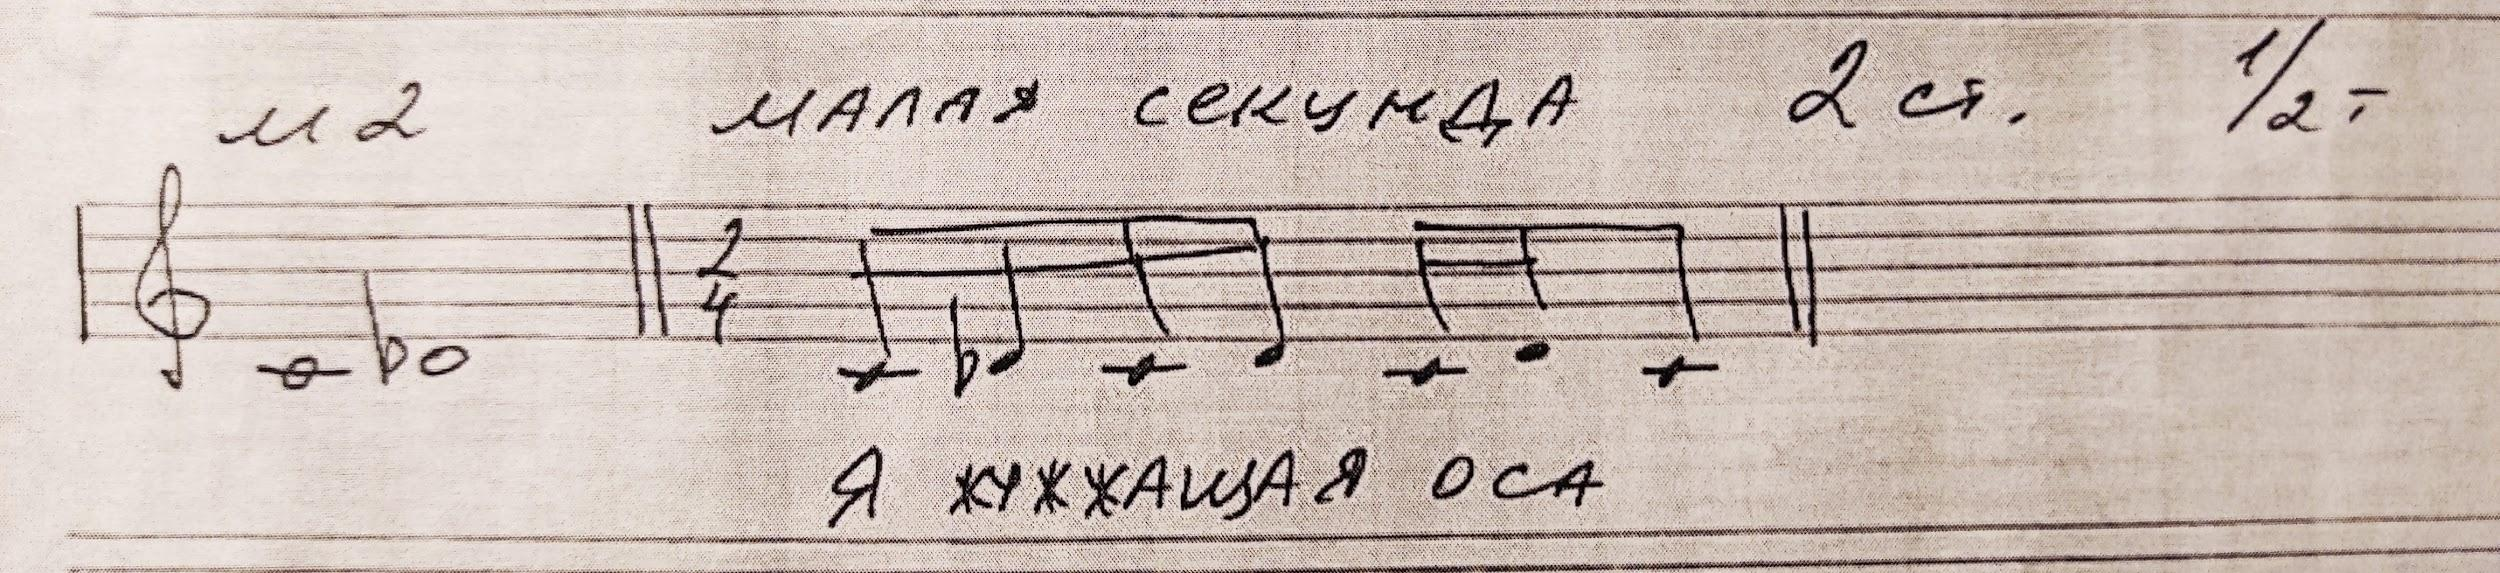 м2 малая секунда 2 ст. 1/2 т
2
4
Я жужжащая оса